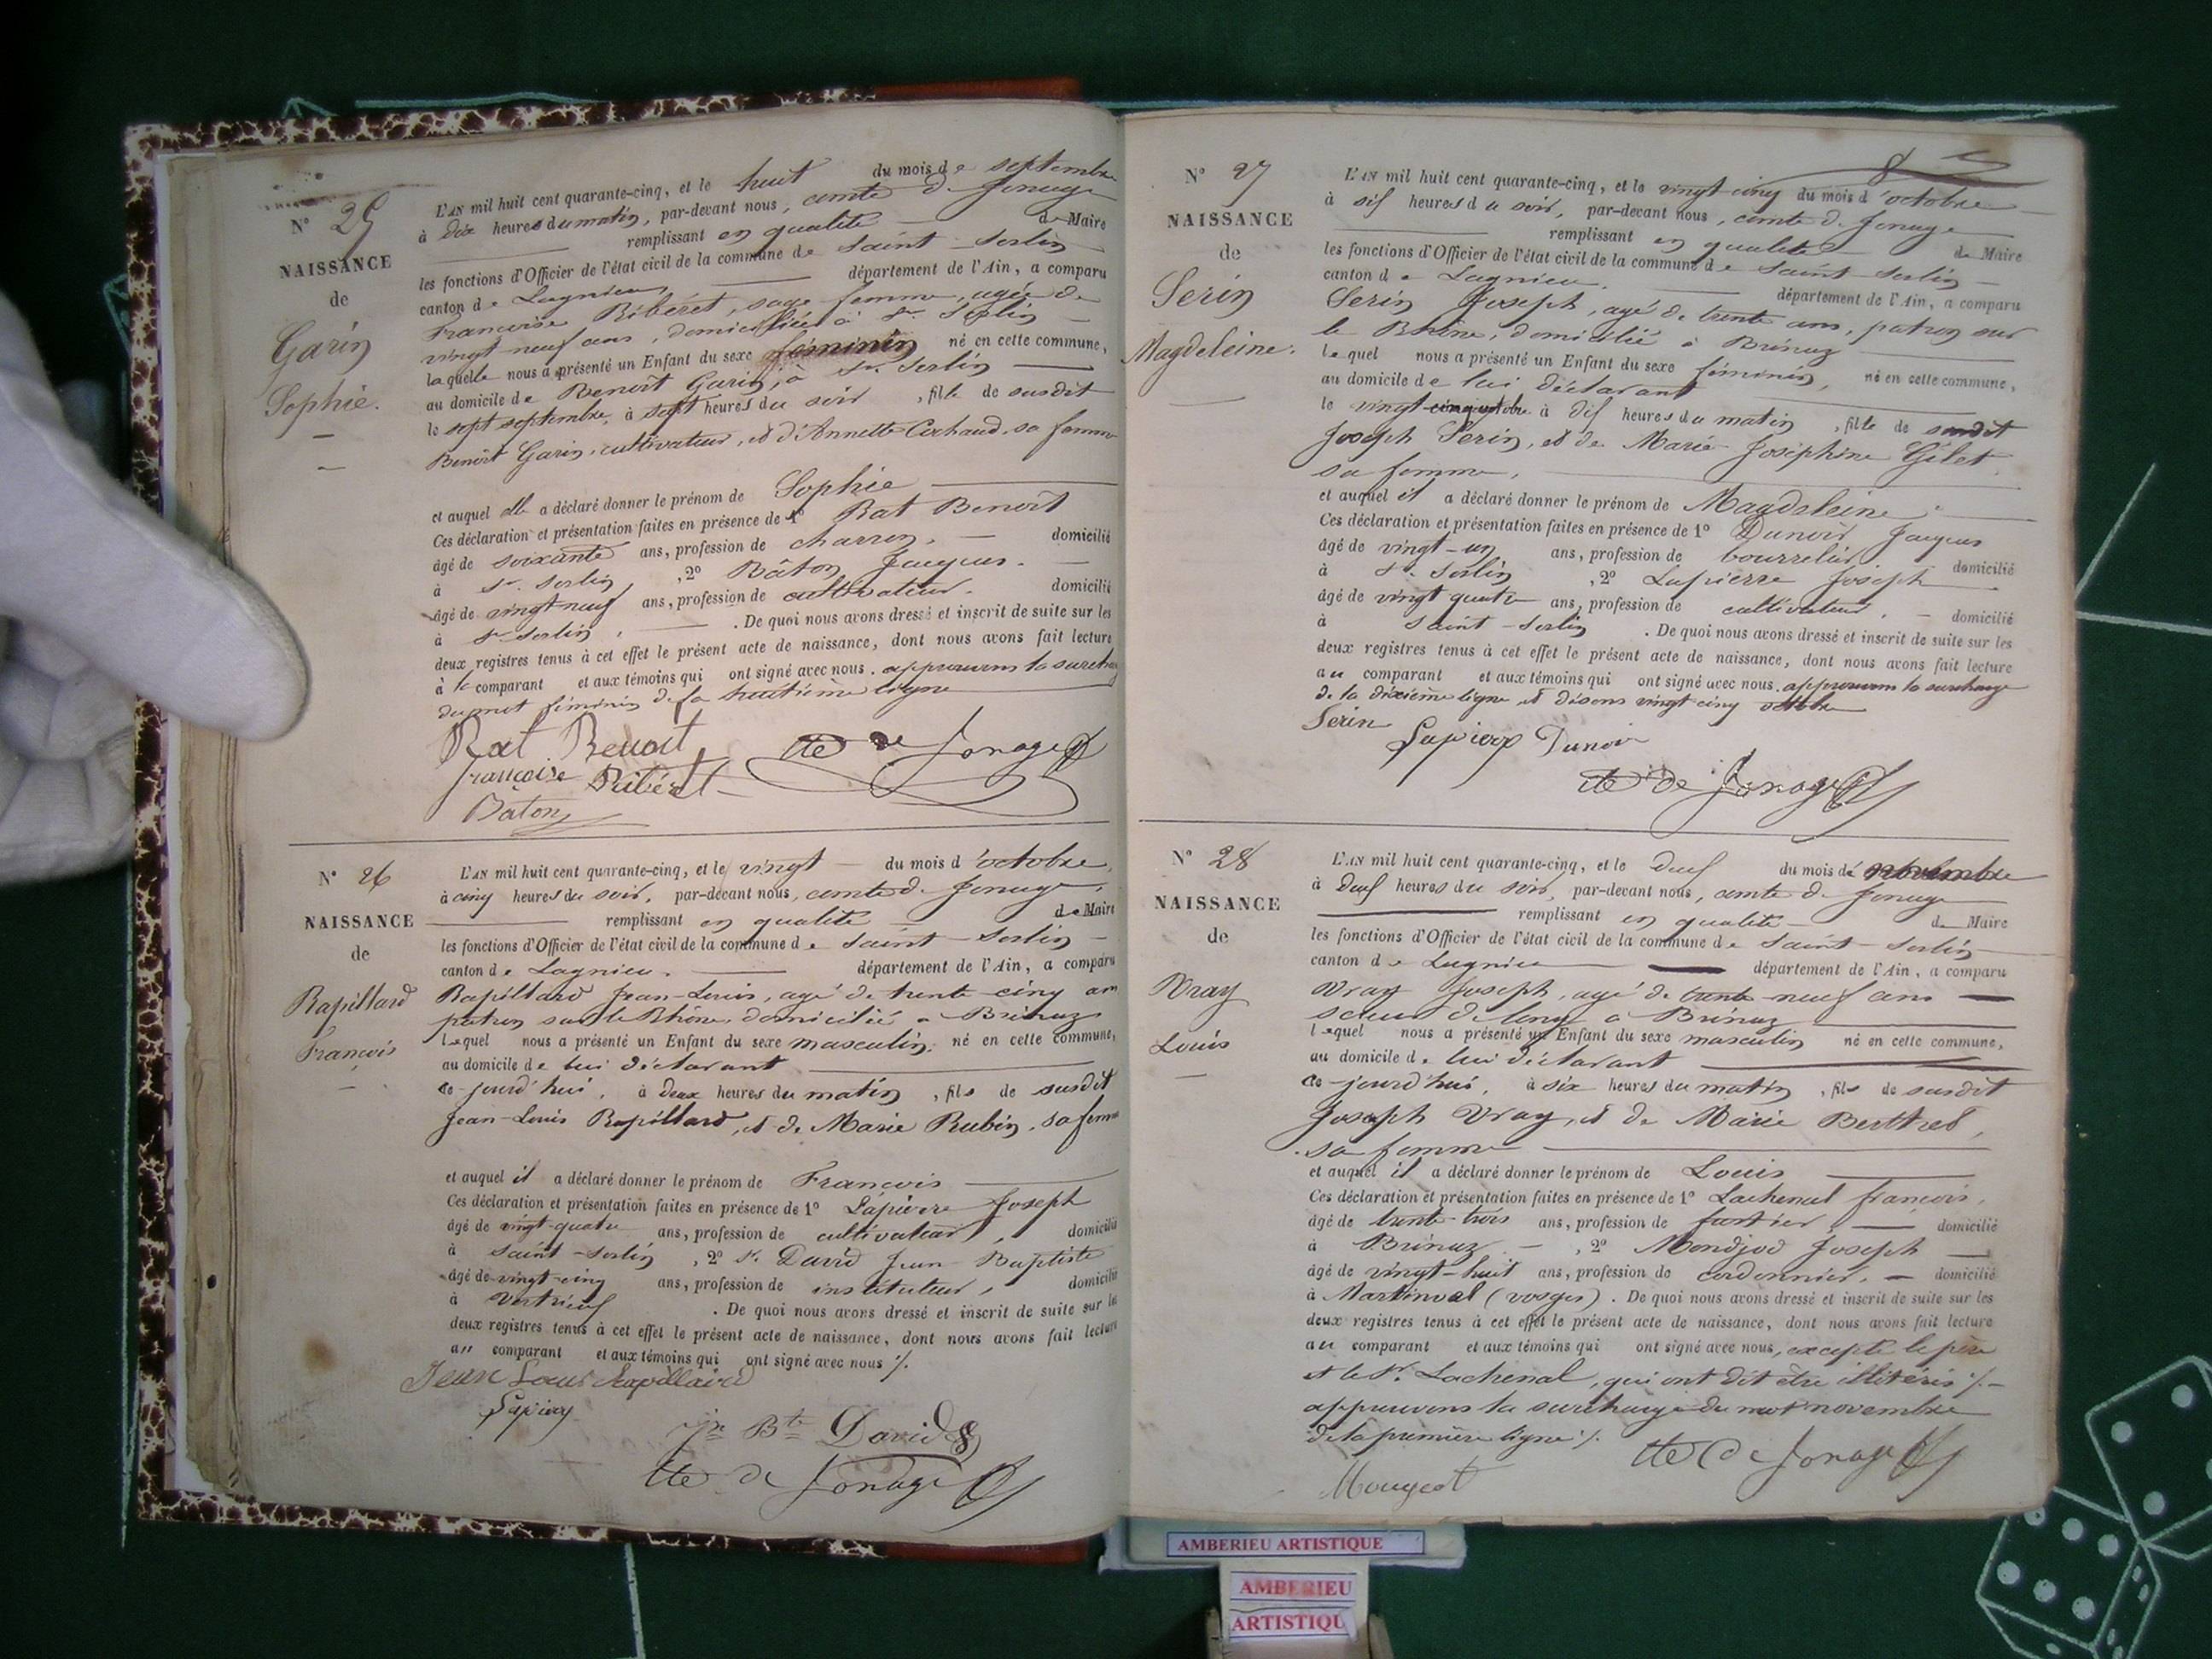 N° 25
NAISSANCE
de
Garin
Sophie.
L'AN mil huit cent quarante-cinq, et le huit du mois de septembre
à dix heures du matin, par-devant nous, comte de Jonage
remplissant en qualité de Maire
les fonctions d'Officier de l'état civil de la commune de Saint-Sorlin
canton de Lagnieu, département de l'Ain, a comparu
Françoise Ribéret, sage femme, agée de
vingt neuf ans, domiciliée à St. Sorlin
laquelle nous a présenté un Enfant du sexe féminin né en cette commune,
au domicile de Benoît Garin, à St. Sorlin
le sept septembre, à sept heures du soir, fille de susdit
Benoît Garin, cultivateur, et d'Annette Cochaud, sa femme
et auquel elle a déclaré donner le prénom de Sophie
Ces déclaration et présentation faites en présence de 1° Rat Benoît
âgé de soixante ans, profession de charron, domicilié
à St. Sorlin, 2° Bâton Jacques.
âgé de vingt neuf ans, profession de cultivateur. domicilié
à St Sorlin. De quoi nous avons dressé et inscrit de suite sur les
deux registres tenus à cet effet le présent acte de naissance, dont nous avons fait lecture
à le comparant et aux témoins qui ont signé avec nous. approuvons la surcharge
du mot féminin de la huitième ligne
Rat Benoit cte de Jonage
françoise Ribéret
Bâton
N° 26
NAISSANCE
de
Rapillard
François
L'AN mil huit cent quarante-cinq, et le vingt du mois d'octobre,
à cinq heures du soir, par-devant nous, comte de Jonage,
remplissant en qualité de Maire
les fonctions d'Officier de l'état civil de la commune de Saint-Sorlin
canton de Lagnieu. département de l'Ain, a comparu
Rapillard Jean-Louis, agé de trente cinq ans
patron sur le Rhône, domicilié à Brinaz
lequel nous a présenté un Enfant du sexe masculin, né en cette commune,
au domicile de lui déclarant
ce jourd'hui, à deux heures du matin, fils de susdit
Jean-Louis Rapillard, et de Marie Rubin, sa femme
et auquel il a déclaré donner le prénom de François
Ces déclaration et présentation faites en présence de 1° Lapierre Joseph
âgé de vingt-quatre ans, profession de cultivateur, domicilié
à Saint-Sorlin, 2° Sr. David Jean Baptiste
âgé de vingt-cinq ans, profession de instituteur, domicilié
à Vertrieux. De quoi nous avons dressé et inscrit de suite sur les
deux registres tenus à cet effet le présent acte de naissance, dont nous avons fait lecture
au comparant et aux témoins qui ont signé avec nous ./.
Jean Louis Rapillard
Lapierre
Jn Bte David
cte de Jonage
8
N° 27
NAISSANCE
de
Serin
Magdeleine.
L'AN mil huit cent quarante-cinq, et le vingt-cinq du mois d'octobre
à six heures du soir, par-devant nous, comte de Jonage
remplissant en qualité de Maire
les fonctions d'Officier de l'état civil de la commune de Saint-Sorlin
canton de Lagnieu. département de l'Ain, a comparu
Serin Joseph, agé de trente ans, patron sur
le Rhône, domicilié à Brinaz
lequel nous a présenté un Enfant du sexe féminin, né en cette commune,
au domicile de lui déclarant
le vingt cinq octobre à dix heures du matin, fille de susdit
Joseph Serin, et de Marie-Joséphine Gilet
sa femme,
et auquel il a déclaré donner le prénom de Magdeleine.
Ces déclaration et présentation faites en présence de 1° Dunoir Jacques
âgé de vingt-un ans, profession de bourrelier domicilié
à St. Sorlin, 2° Lapierre Joseph
âgé de vingt quatre ans, profession de cultivateur, domicilié
à Saint-Sorlin. De quoi nous avons dressé et inscrit de suite sur les
deux registres tenus à cet effet le présent acte de naissance, dont nous avons fait lecture
au comparant et aux témoins qui ont signé avec nous. approuvons la surcharge
de la dixième ligne et disons vingt cinq octobre
Serin
Lapierre Dunoir
cte de Jonage
N° 28
NAISSANCE
de
Vray
Louis
L'AN mil huit cent quarante-cinq, et le deux du mois de novembre
à deux heures du soir, par-devant nous, comte de Jonage
remplissant en qualité de Maire
les fonctions d'Officier de l'état civil de la commune de Saint-Sorlin
canton de Lagnieu département de l'Ain, a comparu
Vray Joseph, agé de trente-neuf ans
scieur de long à Brinaz
lequel nous a présenté un Enfant du sexe masculin né en cette commune,
au domicile de lui déclarant
ce jourd'hui, à six heures du matin, fils de susdit
Joseph Vray, et de Marie Berthet,
sa femme
et auquel il a déclaré donner le prénom de Louis
Ces déclaration et présentation faites en présence de 1° Lachenal françois,
âgé de trente-trois ans, profession de domicilié
à Brinaz, 2° Mondjod Joseph
âgé de vingt-huit ans, profession de cordonnier, domicilié
à Martinval (vosges). De quoi nous avons dressé et inscrit de suite sur les
deux registres tenus à cet effet le présent acte de naissance, dont nous avons fait lecture
au comparant et aux témoins qui ont signé avec nous, excepté le père
et le Sr. Lachenal, qui ont dit être illitérés ./.
approuvons la surcharge du mot novembre
de la première ligne ./.
cte de Jonage
Mougeot
AMBERIEU ARTISTIQUE
AMBERIEU
ARTISTIQU